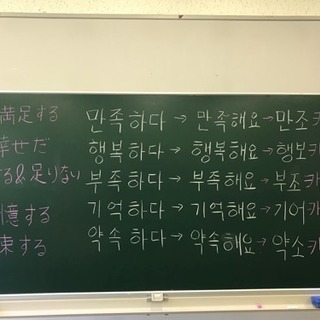 満足する 만족하다 → 만족해요 → 만조카
幸せだ 행복하다 → 행복해요 → 행보카
る&足りない 부족하다 → 부족해요 → 부조카
憶する 기억하다 → 기억해요 → 기어카
束する 약속하다 → 약속해요 → 약소카